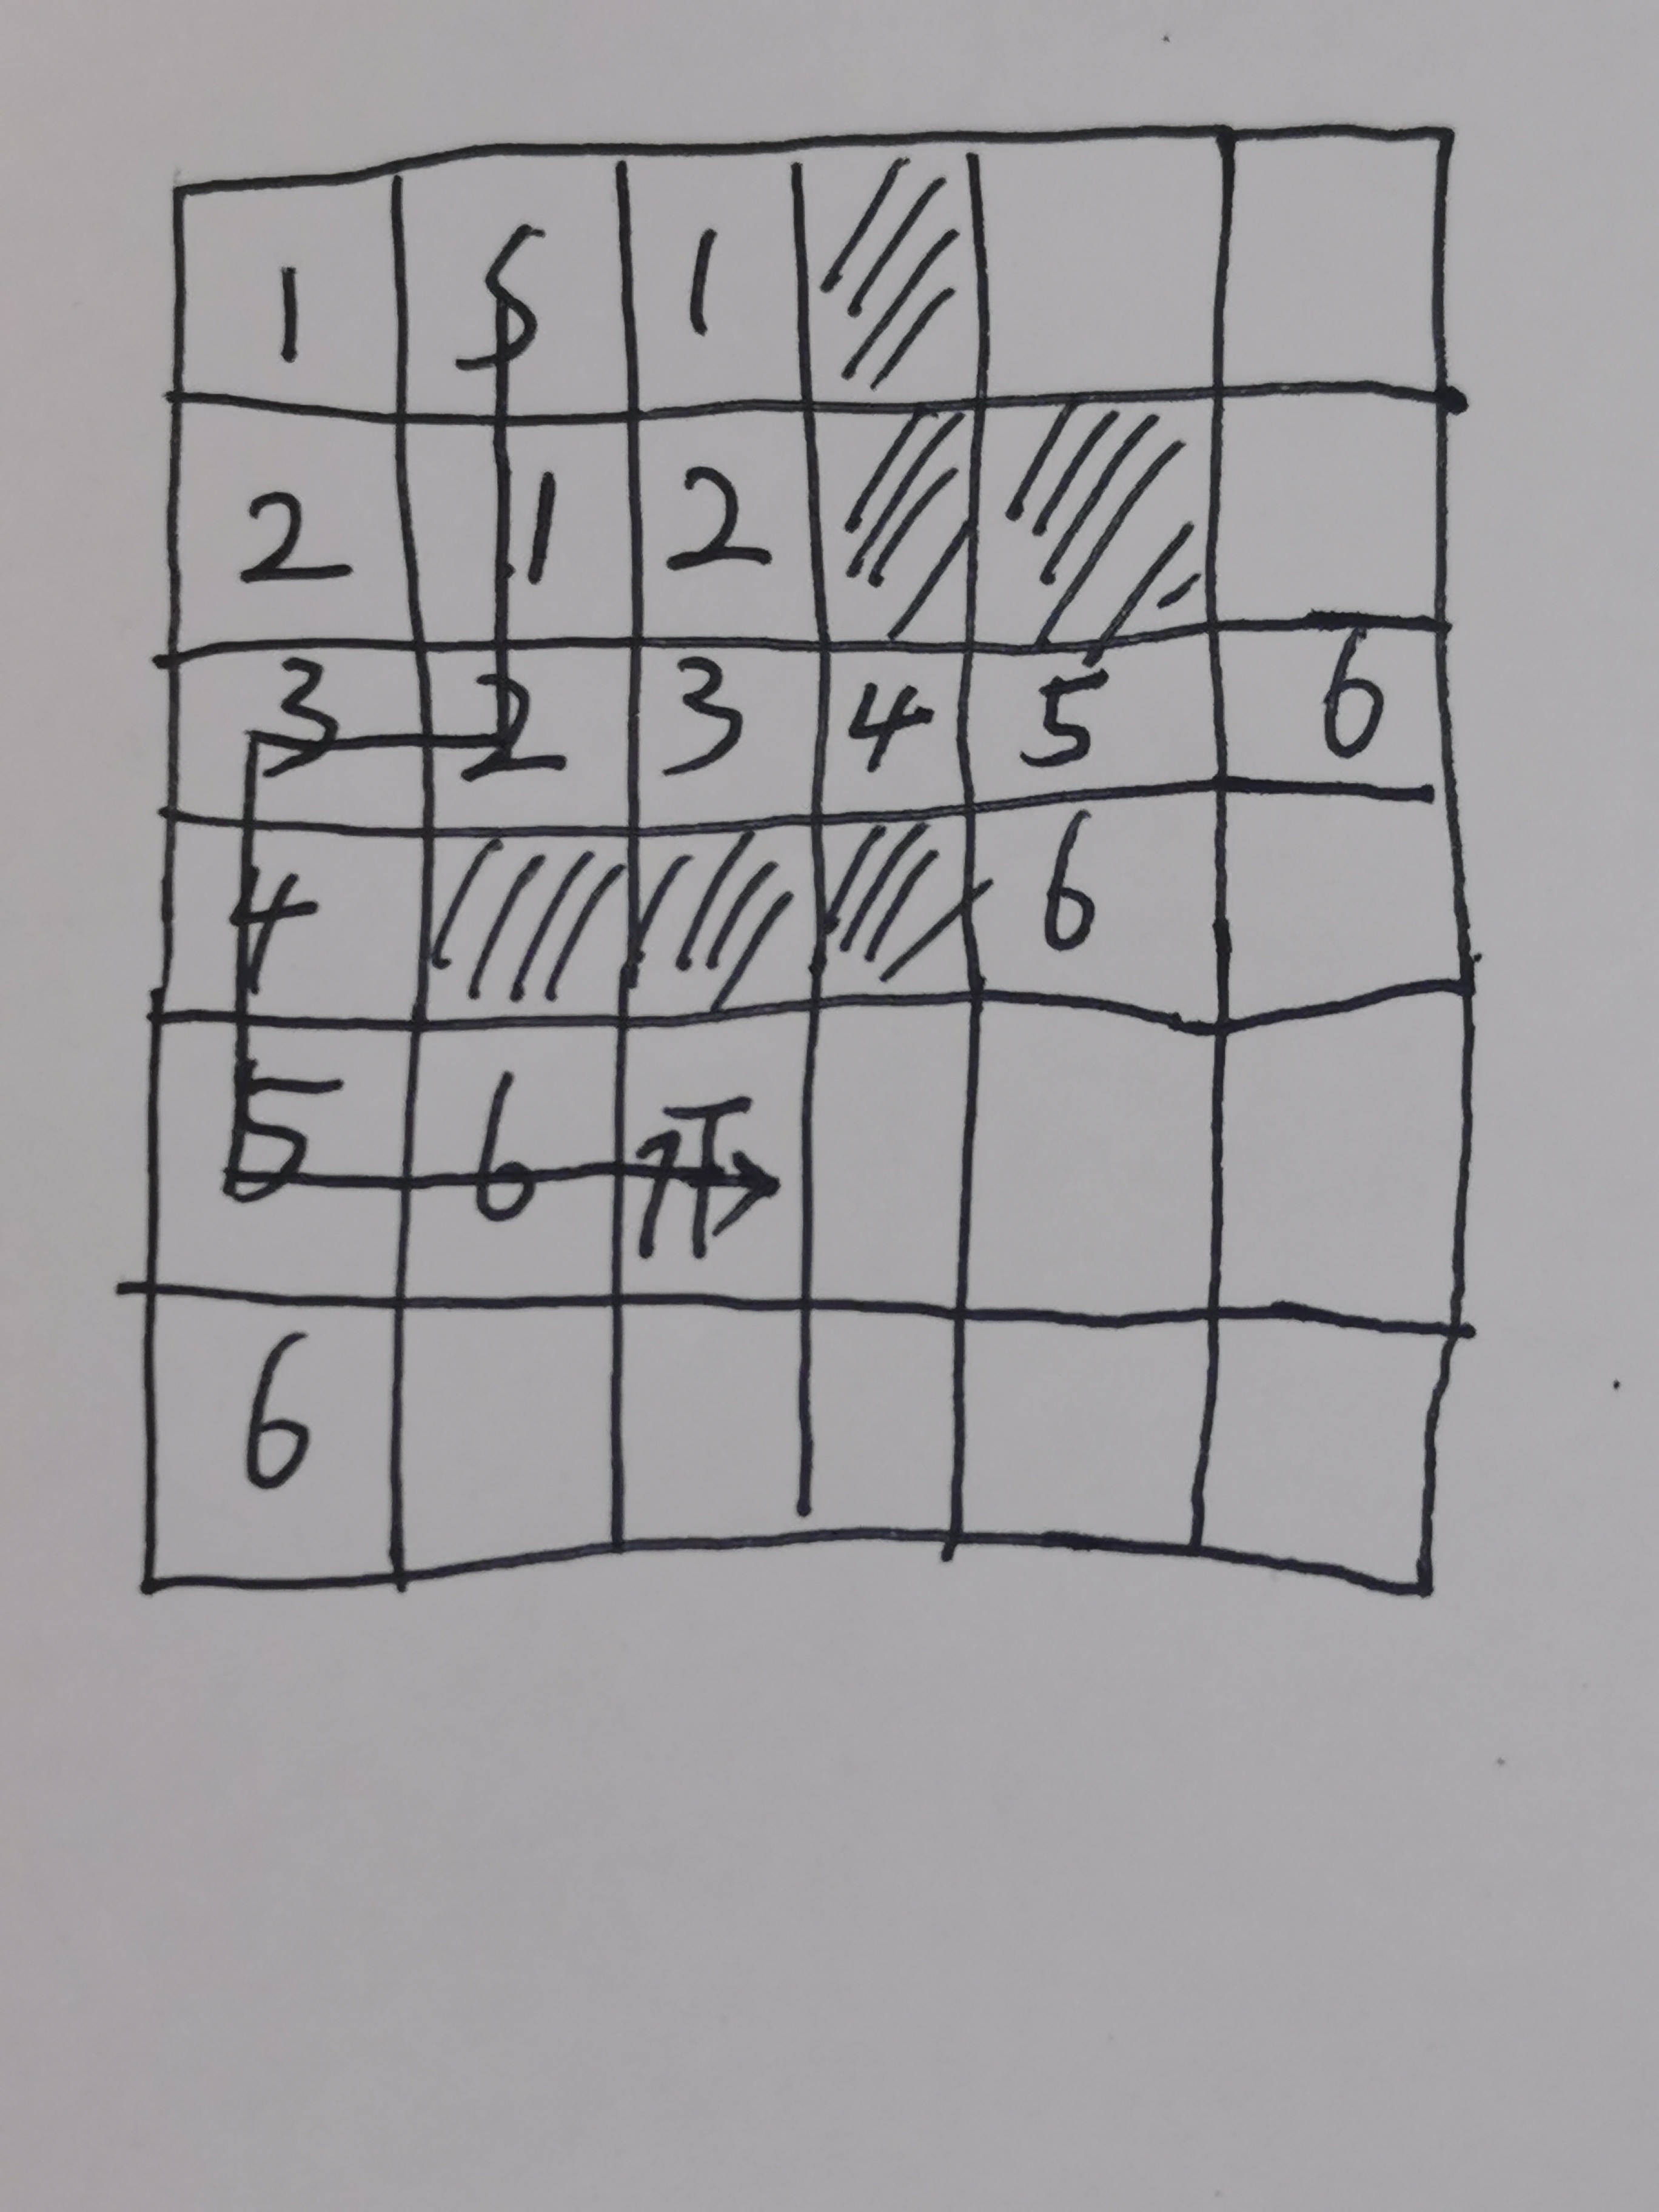 1 S 1
2 1 2
3 2 3 4 5 6
4 6
5 6
6